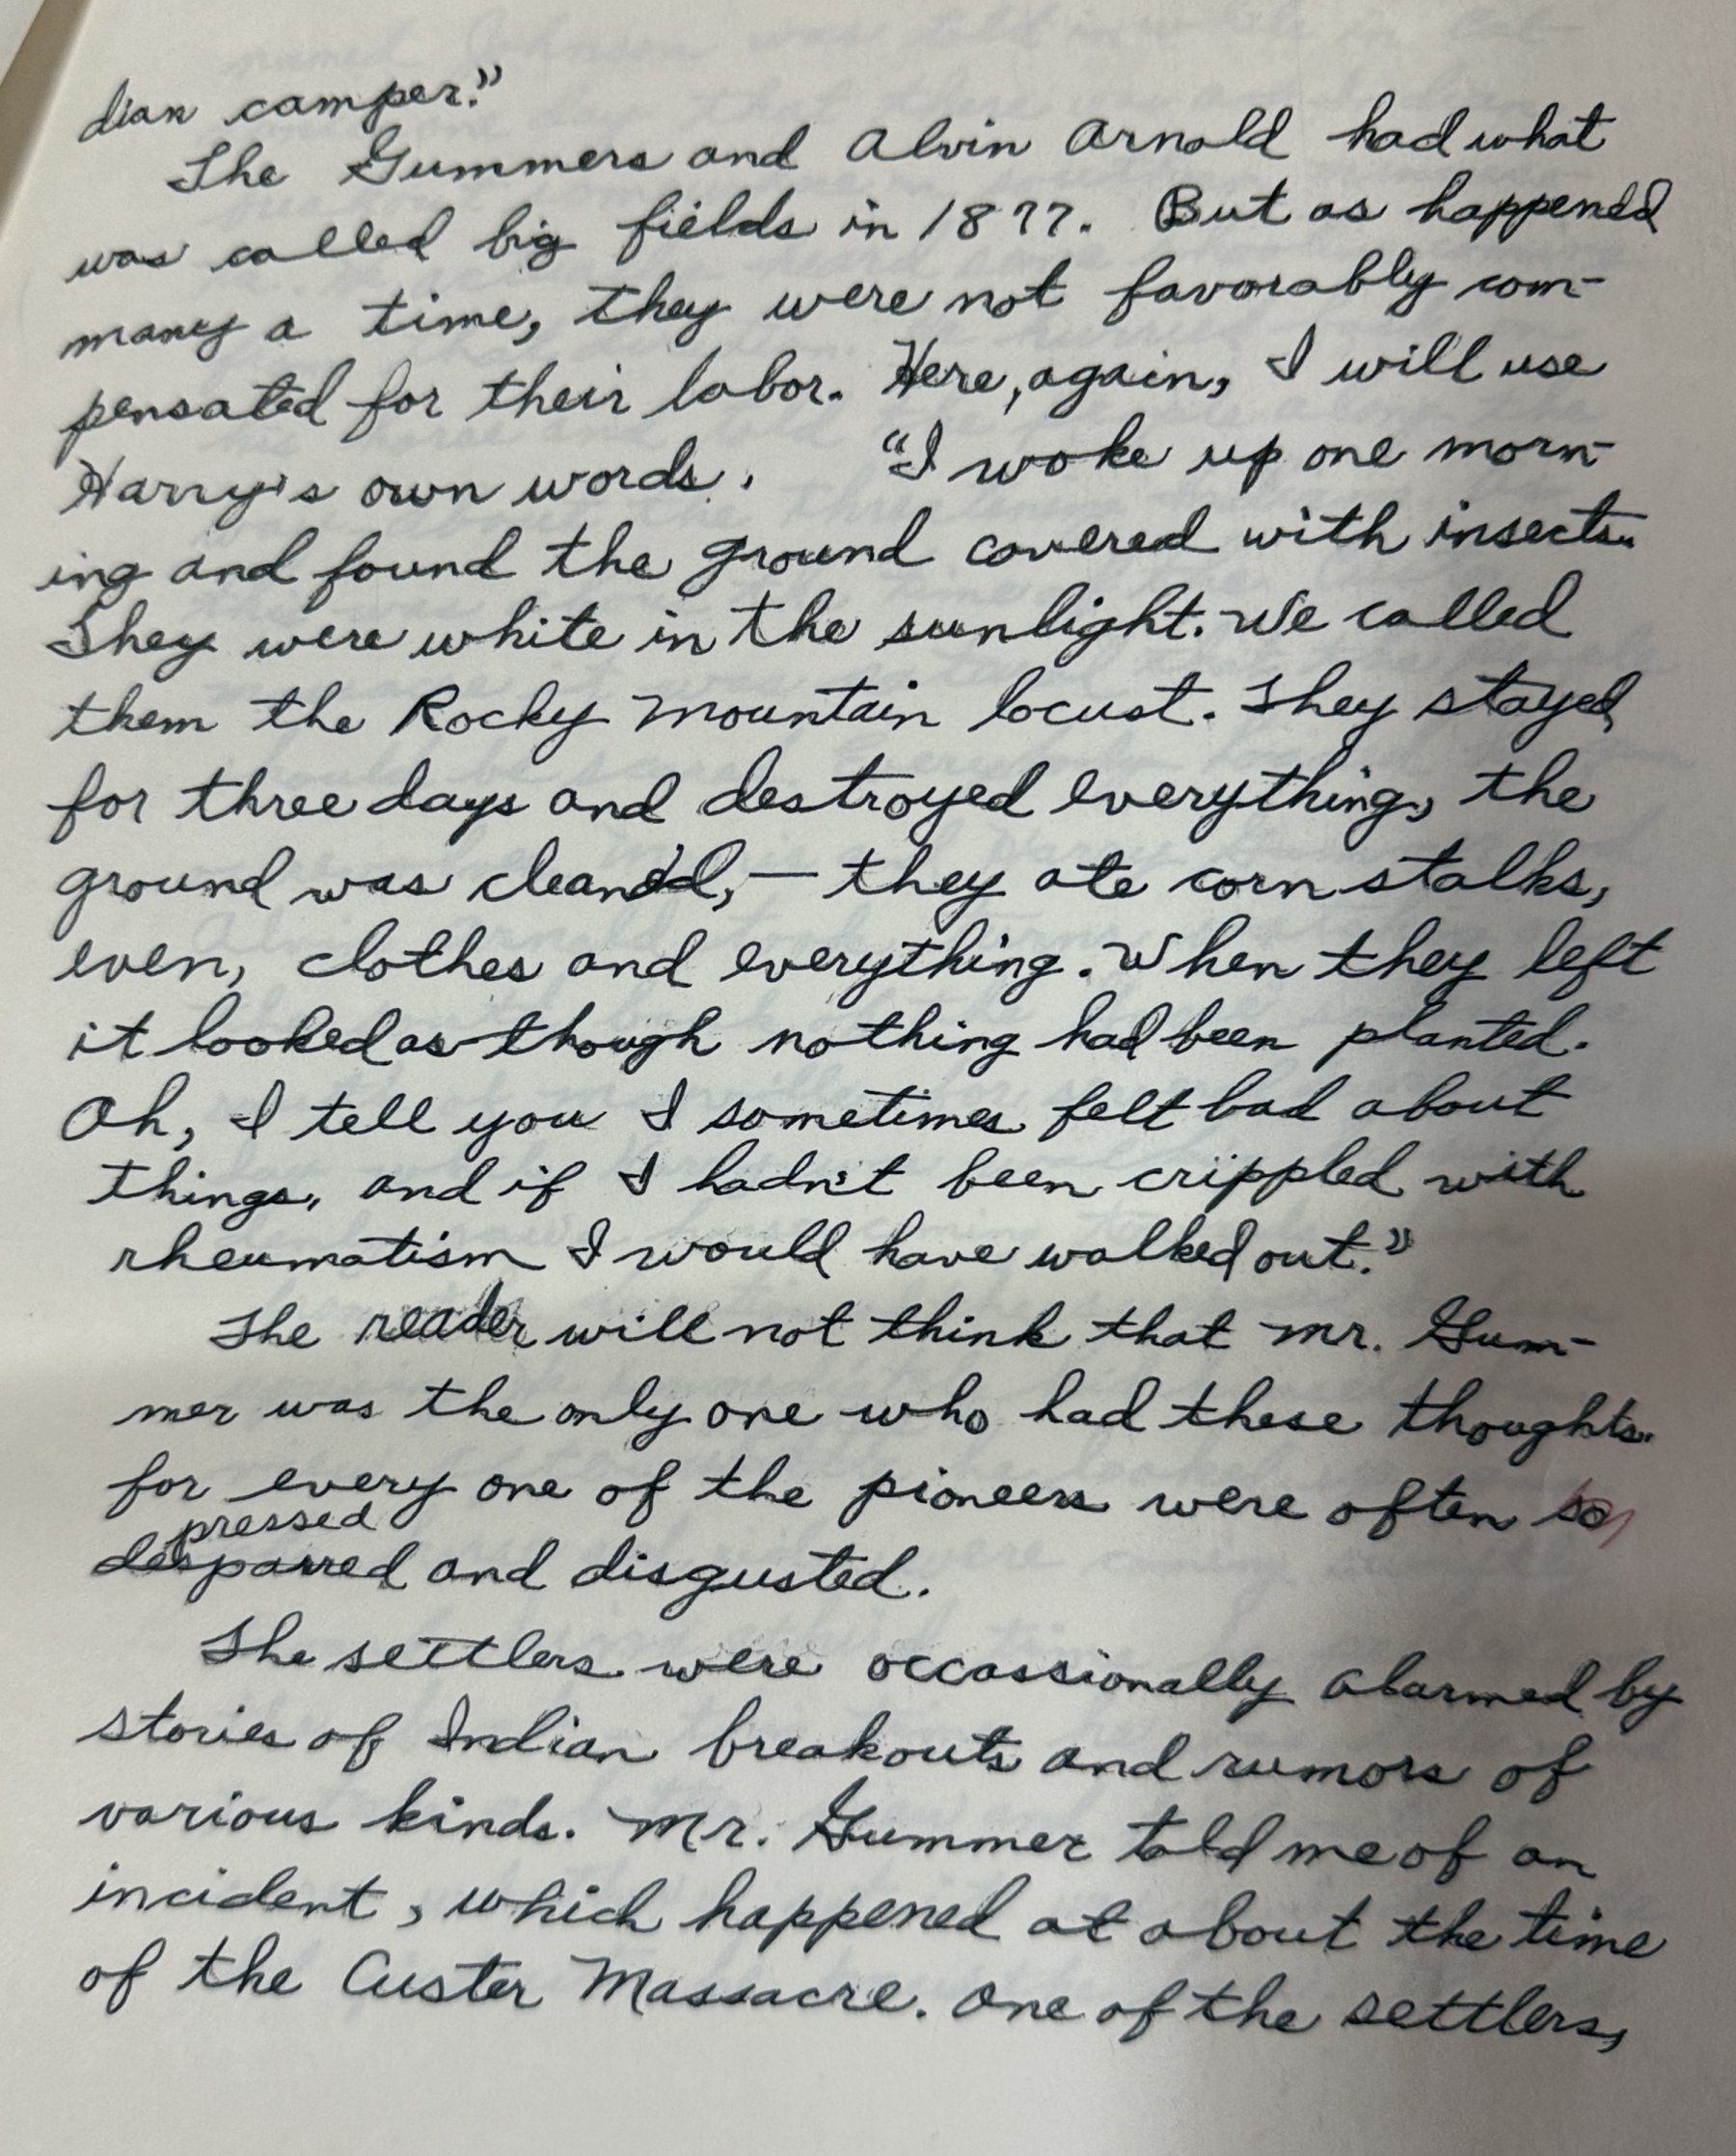 dian camper."
The Gummers and Alvin Arnold had what
was called big fields in 1877. But as happened
many a time, they were not favorably com-
pensated for their labor. Here, again, I will use
Harry's own words. "I woke up one morn-
ing and found the ground covered with insects.
They were white in the sunlight. We called
them the Rocky Mountain locust. They stayed
for three days and destroyed everything, the
ground was cleaned, — they ate corn stalks,
even, clothes and everything. When they left
it looked as though nothing had been planted.
Oh, I tell you I sometimes felt bad about
things, and if I hadn't been crippled with
rheumatism I would have walked out."
The reader will not think that Mr. Gum-
mer was the only one who had these thoughts.
for every one of the pioneers were often so
pressed
desparred and disgusted.
The settlers were occassionally alarmed by
stories of Indian breakouts and rumors of
various kinds. Mr. Gummer told me of an
incident, which happened at about the time
of the Custer Massacre. One of the settlers,